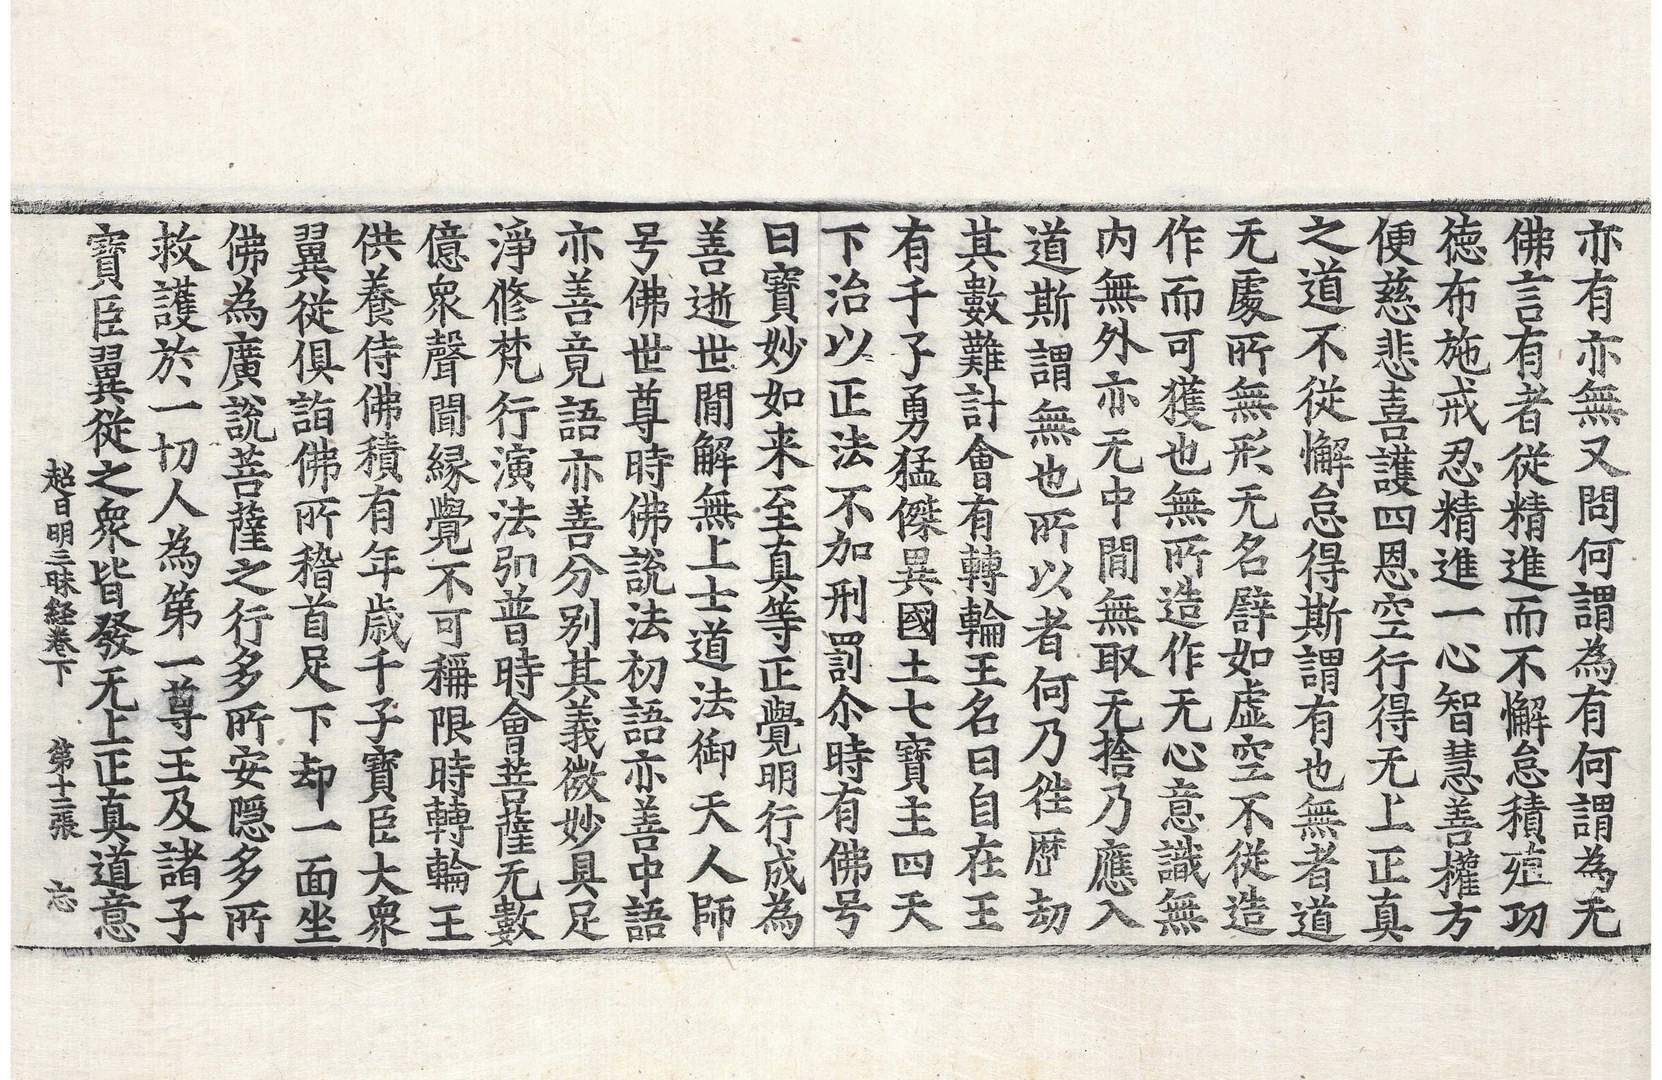 亦有亦無又問何謂為有何謂為无
佛言有者從精進而不懈怠積殖功
徳布施戒忍精進一心智慧善權方
便慈悲喜護四恩空行得无上正真
之道不從懈怠得斯謂有也無者道
无處所無形无名譬如虚空不從造
作而可獲也無所造作无心意識無
内無外亦无中間無取无捨乃應入
道斯謂無也所以者何乃徃歷劫
其數難計會有轉輪王名曰自在王
有千子勇猛傑異國土七寶主四天
下治以正法不加刑罰尒時有佛号
曰寶妙如来至真等正覺明行成為
善逝世間解無上士道法御天人師
号佛世尊時佛說法初語亦善中語
亦善竟語亦善分别其義微妙具足
淨修梵行演法㓨普時會菩薩无數
億衆聲聞緣覺不可稱限時轉輪王
供養侍佛積有年歲千子寶臣大衆
翼從俱詣佛所稽首足下却一面坐
佛為廣說菩薩之行多所安隱多所
救護於一切人為第一尊王及諸子
寶臣翼從之衆皆發无上正真道意
超日明三昧経卷下 第十二張 忘